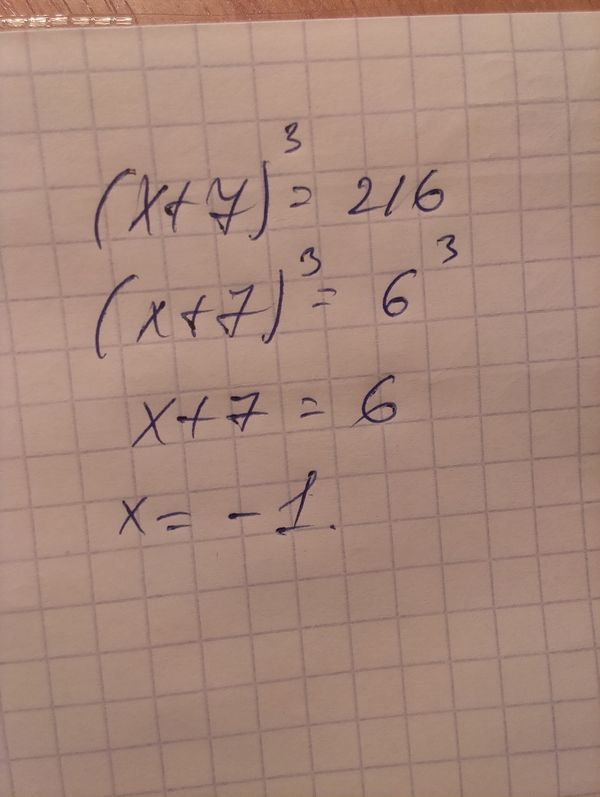 (x+7)³ = 216
(x+7)³ = 6³
x+7 = 6
x = -1.